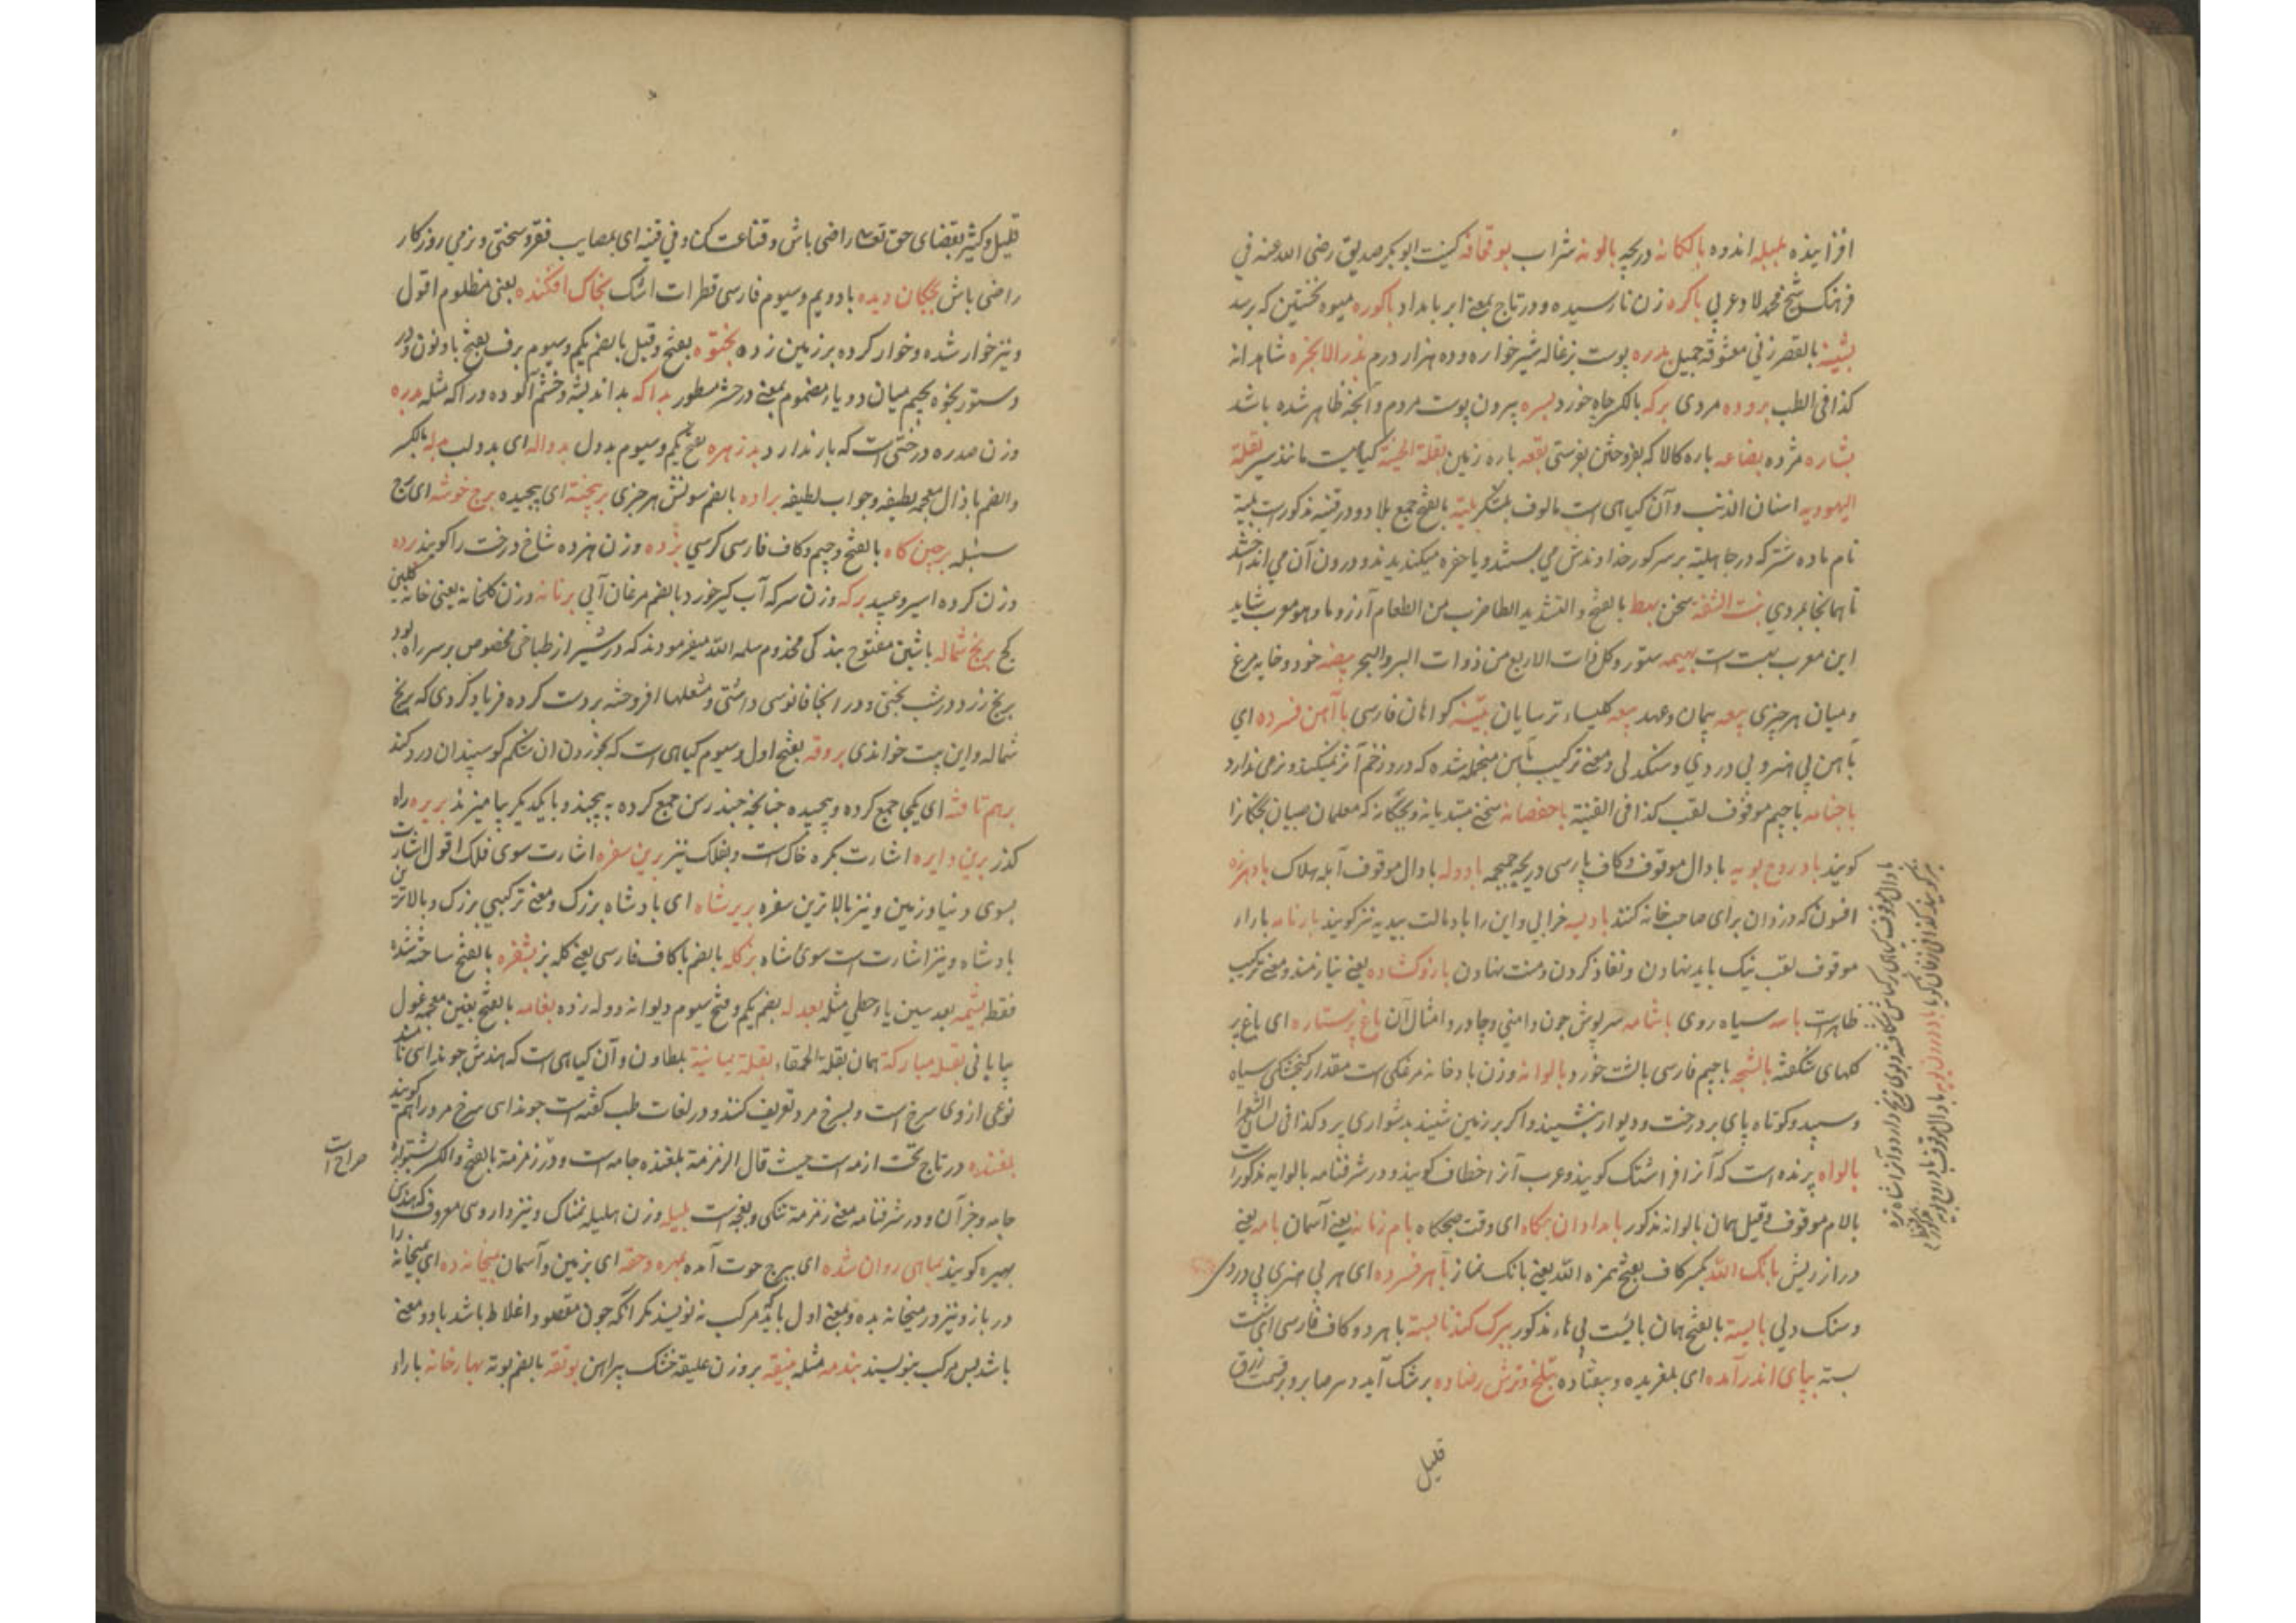 افزاینده بلبله اندوه بالکانه دریچه بالونه شراب بوقحافه کنیت ابوبکر صدیق رضی الله عنه فی
فرهنک شیخ محمد لاد عربی باکره زن نارسیده و در تاج بمعنی ابر بامداد باکوره میوه نخستین که برسد
بالقصر زنی معشوقه جمیل بدره پوست بزغاله شیرخواره و ده هزار درم بذر الابخره شاهدانه
کذا فی الطب برده مردی برکه بالکسر جاه خورد بسره بیرون پوست مردم و آنچه ظاهر شده باشد
بشاره مژده بضاعه باره کالا که بفروختن بفرستی بقعه باره زمین بقلة کیاهیست مانند سیر بقلة
الیهودیه اسنان الذئب و آن کیاهی است مالوف بلتکر بلیة بالفتح جمع بلاد و در قنیه مذکور است بلیة
نام ماده شتر که در جاهلیته بر سر کور خداوندش می بستند و یا حفره میکندیدند و درون آن می انداختند
تا همانجا مردی بنت الشفة سخن بط بالفتح و التشدید الطا ضرب من الطعام آرزو ما و هو معرب شاید
این معرب بهت است بهیمه ستور و کل ذات الاربع من ذوات البر و البحر بیضه خود و خایه مرغ
و میان هر چیزی بیعه پیمان و عهد بیعه کلیساء ترسایان بینة کواهان فارسی با آهن فسرده ای
بآهن بی هنر و بی دردی و سنکدلی و معنی ترکیب بآهن منجمد شده که در و زخم آثر نمیکند و نرمی ندارد
باجنامه باجیم موقوف لقب کذا فی القنیة باحفصانه سخنی مبتدیانه و بچکانه که معلمان صبیان بچکانرا
کویند بادروح بویه بادال موقوف و کاف پارسی دریچه بادوله بادال موقوف آبله هلاک بادهزه
افسون که دزدان برای صاحب خانه کنند بادیه خرابی و این را بادمالت بیدیه نیز کویند بارنامه باراء
موقوف لقب نیک باید نهادن و نفاذ کردن و منت نهادن بازو کشاده یعنی نیازمند و معنی ترکیب
ظاهر است باسه سیاه روی باشامه سرپوش جون دامنی و چادر و امثال آن باغ پرستاره ای باغ پر
کلهای شکفته بالشچه باجیم فارسی بالشت خورد بالوانه وزن بادخانه مرغکی است مقدار کنجشکی سیاه
و سپید و کوتاه پای بر درخت و دیوار بنشیند و اکر بر زمین نشیند بدشواری پرد کذا فی لسان الشعرا
بالواه پرنده است که آنرا فراشتک کویند و عرب آنرا خطاف کویند و در شرفنامه بالوایه مذکور است
بالام موقوف و قیل همان بالوانه مذکور بامدادان پکاه ای وقت صبحکاه بام زمانه یعنی آسمان بامه یعنی
دراز ریش بانک الله بکسر کاف بفتح همزه الله یعنی بانک نماز بآهر فسرده ای هر بی هنری بی دردی
و سنک دلی بایسته بالفتح همان بایست بی هاء مذکور ببرک کند نا بسته باهر دو کاف فارسی ای
بسته بپای اندر آمده ای بلغزیده و بیفتاده بتلخ و ترش رضا ده بر شک آید و سر صابر و بر قسمت رزق
قلیل
قلیل و کثیر بقضای حق تعالی راضی باش و قناعت کن و فی قنیه ای بمصایب فقر و سختی و نرمی روزکار
راضی باش بچکان دیده بادویم و سیوم فارسی قطرات اشک بخاک افکنده یعنی مظلوم اقول
و نیز خوار شده و خوار کرده بر زمین زده بخنوه بفتح و قیل بالضم یکم و سیوم برف بفتح باو نون و در
دستور بخوه بجیم میان دو یاء مضموم بمعنی درحشر مسطور بداکه بداندیشه و خشم آلوده و راکه مثله بدره
وزن صدره درختی است که بار ندارد بدزهره بفتح یکم و سیوم بددل بدواله ای بدولب بذله بالکسر
و الضم باذال معجمه لطیفه و جواب لطیفه براده بالضم سونش هر چیزی برپخیته ای پیچیده برج خوشه ای برج
سنبله برجین کاه بالفتح و جیم و کاف فارسی کرسی بزده وزن هزده شاخ درخت را کویند برده
وزن کرده اسیر و عبید برکه وزن سرکه آب کیر خورد بالضم مرغان آبی برنانه وزن کلخانه یعنی خانه کلین
کج برنج شماله باشین مفتوح بندکی مخدوم سلمه الله میفرمودند که در شیراز طباخی مخصوص بر سر راه بود
برنج زرد در شب پختی و در انجا فانوسی داشتی و مشعلها افروخته بر دست کرده فریاد کردی که برنج
شماله و این بیت خواندی بروقه بفتح اول و سیوم کیاهی است که بخوردن ان شکم کوسپندان درد کند
برهم تافته ای یکجا جمع کرده و پیچیده چنانچه چند رسن جمع کرده به پیچند و با یکدیکر بیامیزند بریره راه
کذر برین دایره اشارت بکره خاک است و بفلک نیز برین سفره اشارت سوی فلک اقول اشارت
بسوی دنیا و زمین و نیز بالاترین سفره بربرشاه ای بادشاه بزرک و معنی ترکیبی بزرک و بالاترین
بادشاه و نیز اشارت است سوی شاه بزکله بالضم باکاف فارسی یعنی کله بز بشغره بالفتح ساخته شده
فقط بشیمه بعد سین یاء حطی مثله بعدله بضم یکم و فتح سیوم دیوانه و وله زده بغامه بالفتح بغین معجمه غول
بیابانی بقله مبارکة همان بقلة الحمقاء بقلة یمانیة بلطاون و آن کیاهی است که هندش جونداسی نامند
نوعی از وی سرخ است و بسرخ مرد تعریف کنند و در لغات طب کفته است جونداسی سرخ مرد را هم کویند
بلغنده در تاج تحت ازمه است حیث قال الرزمة بلغنده جامه است و در رزمة بالفتح و الکسر پشتواره
جامه و جز آن و در شرفنامه معنی رزمة تنکی و بغچه است بلیله وزن هلیله نمناک و نیز داروی معروف که هندی
بهیره کویند بماهی روان شده ای ببرج حوت آمده بمهره و حقه ای بزمین و آسمان بمیخانه ده ای بمیخانه را
در باز و نیز در میخانه بده و بمعنی اول باید که مرکب نه نویسند مکر آنکه جون مقصود اغلاط باشد یا دو معنی
باشد پس مرکب بنویسند بندمه مثله بنیقه بروزن علیقه خشتک پیراهن بوتقه بالضم بوته بهارخانه باراء
صراح است